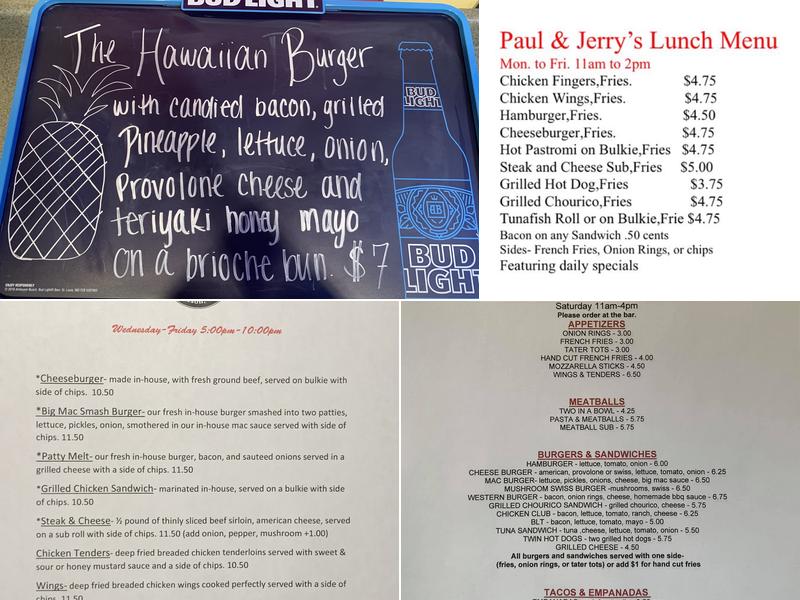 BUD LIGHT.
The Hawaiian Burger
with candied bacon, grilled
Pineapple, lettuce, onion,
Provolone cheese and
teriyaki honey mayo
on a brioche bun. $7
BUD
LIGHT
BUD
LIGHT
ENJOY RESPONSIBLY
Paul & Jerry's Lunch Menu
Mon. to Fri. 11am to 2pm
Chicken Fingers,Fries. $4.75
Chicken Wings,Fries. $4.75
Hamburger,Fries. $4.50
Cheeseburger,Fries. $4.75
Hot Pastromi on Bulkie,Fries $4.75
Steak and Cheese Sub,Fries $5.00
Grilled Hot Dog,Fries $3.75
Grilled Chourico,Fries $4.75
Tunafish Roll or on Bulkie,Frie $4.75
Bacon on any Sandwich .50 cents
Sides- French Fries, Onion Rings, or chips
Featuring daily specials
Wednesday-Friday 5:00pm-10:00pm
*Cheeseburger- made in-house, with fresh ground beef, served on bulkie with
side of chips. 10.50
*Big Mac Smash Burger- our fresh in-house burger smashed into two patties,
lettuce, pickles, onion, smothered in our in-house mac sauce served with side of
chips. 11.50
*Patty Melt- our fresh in-house burger, bacon, and sauteed onions served in a
grilled cheese with a side of chips. 11.50
*Grilled Chicken Sandwich- marinated in-house, served on a bulkie with side
of chips. 10.50
*Steak & Cheese- ½ pound of thinly sliced beef sirloin, american cheese, served
on a sub roll with side of chips. 11.50 (add onion, pepper, mushroom +1.00)
Chicken Tenders- deep fried breaded chicken tenderloins served with sweet &
sour or honey mustard sauce and a side of chips. 10.50
Wings- deep fried breaded chicken wings cooked perfectly served with a side of
chips. 11.50
Saturday 11am-4pm
Please order at the bar.
APPETIZERS
ONION RINGS - 3.00
FRENCH FRIES - 3.00
TATER TOTS - 3.00
HAND CUT FRENCH FRIES - 4.00
MOZZARELLA STICKS - 4.50
WINGS & TENDERS - 6.50
MEATBALLS
TWO IN A BOWL - 4.25
PASTA & MEATBALLS - 5.75
MEATBALL SUB - 5.75
BURGERS & SANDWICHES
HAMBURGER - lettuce, tomato, onion - 6.00
CHEESE BURGER - american, provolone or swiss, lettuce, tomato, onion - 6.25
MAC BURGER- lettuce, pickles, onions, cheese, big mac sauce - 6.50
MUSHROOM SWISS BURGER -mushrooms, swiss - 6.50
WESTERN BURGER - bacon, onion rings, cheese, homemade bbq sauce - 6.75
GRILLED CHOURICO SANDWICH - grilled chourico, cheese - 5.75
CHICKEN CLUB - bacon, lettuce, tomato, ranch, cheese - 6.25
BLT - bacon, lettuce, tomato, mayo - 5.00
TUNA SANDWICH - tuna ,cheese, lettuce, tomato, onion - 5.50
TWIN HOT DOGS - two grilled hot dogs - 5.75
GRILLED CHEESE - 4.50
All burgers and sandwiches served with one side-
(fries, onion rings, or tater tots) or add $1 for hand cut fries
TACOS & EMPANADAS